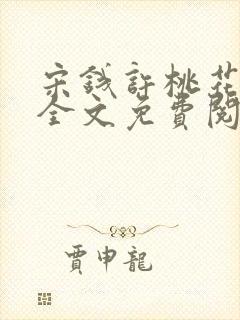 宋錢許桃花
全文免費閱
賈申龍